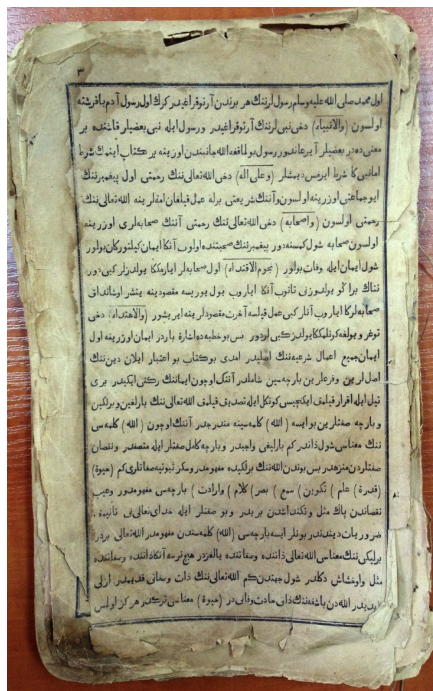 ٣
اول محمد صلى الله عليه وسلم رسول لرننك هر برندن آرتوقراغيدر كرك اول رسول آدم يا فرشته
اولسون (والانبياء) دخى نبى لرننك آرتوقراغيدر ورسول ايله نبى بعضيلر قاشنده بر
معنى ده در بعضيلر آيرغاندور رسول بولماقغه الله جانبندن اوزرينه بر كتاب اينمك شرط
امانبى كا شرط ايرمس ديمشلر (وعلى اله) دخى الله تعالى ننك رحمتى اول پيغمبرننك
ايو جماعتى اوزرينه اولسون وآننك شريعتى برله عمل قيلغان امتلرينه الله تعالى ننك
رحمتى اولسون (واصحابه) دخى الله تعالى ننك رحمتى آننك صحابه لرى اوزرينه
اولسون صحابه شول كمسنه دور پيغمبرننك صحبتنده اولوب آنكا ايمان كيلتوركان بولور
شول ايمان ايله وفات بولور (نجوم الاقتداء) اول صحابه لر ايارمككا يولدزلر كبى دور
ننك برا كو يولدوزنى تانوب آنكا ياروب يول يوريسه مقصودينه يتشر اوشانداق
صحابه لركا اياروب آنلر كبى عمل قيلسه آخرت مقصودلرينه ايريشور (والاهتداء) دخى
توغرو يولغه كونلمككا يولدز كبى لردور بس بو خطبه ده اشارة باردر ايمان اوزرينه اول
ايمان جميع اعمال شرعيه ننك اصليدر امدى بو كتاب بو اعتبار ايلان دين ننك
اصل لرين وفرعلرين بارچه سين شاملدر آننك اوچون ايماننك ركنى ايكيدر برى
تيل ايله اقرار قيلمق ايكنچيسى كوكل ايله تصديق قيلمق الله تعالى ننك بارلغين وبرلكين
وبارچه صفتلرين بو ايسه (الله) كلمه سينه مندرجدر آننك اوچون (الله) كلمه سى
ننك معناسى شول ذاتدر كم بارليغى واجبدر وبارچه كامل صفتلر ايله متصفدر ونقصان
صفتلردن منزهدر بس بوندن الله ننك برلكيده مفهومدر وسكز ثبوتيه صفاتلرى كم (حيوة)
(قدرة) (علم) (تكوين) (سمع) (بصر) (كلام) (وارادت) بارچه سى مفهومدور وعيب
نقصاندن پاك مثل وتكنداشدن بريدر وبو صفتلر ايله خداى تعالى نى تانيمق
ضروريات ديندندر بونلر ايسه بارچه سى (الله) كلمه سندن مفهومدر الله تعالى بردر
برليكى ننك معناسى الله تعالى ذاتنده وصفاتنده يالغزدر هيچ نرسه آنكا ذاتنده وصفاتنده
مثل واوخشاش دكلدر شول جهتدن كم الله تعالى ننك ذات وصفاتى قديمدر ازلى
الله دن باشقه ننك ذاتى حادث وفانى در (حيوة) معناسى تركدر هركز اولمس